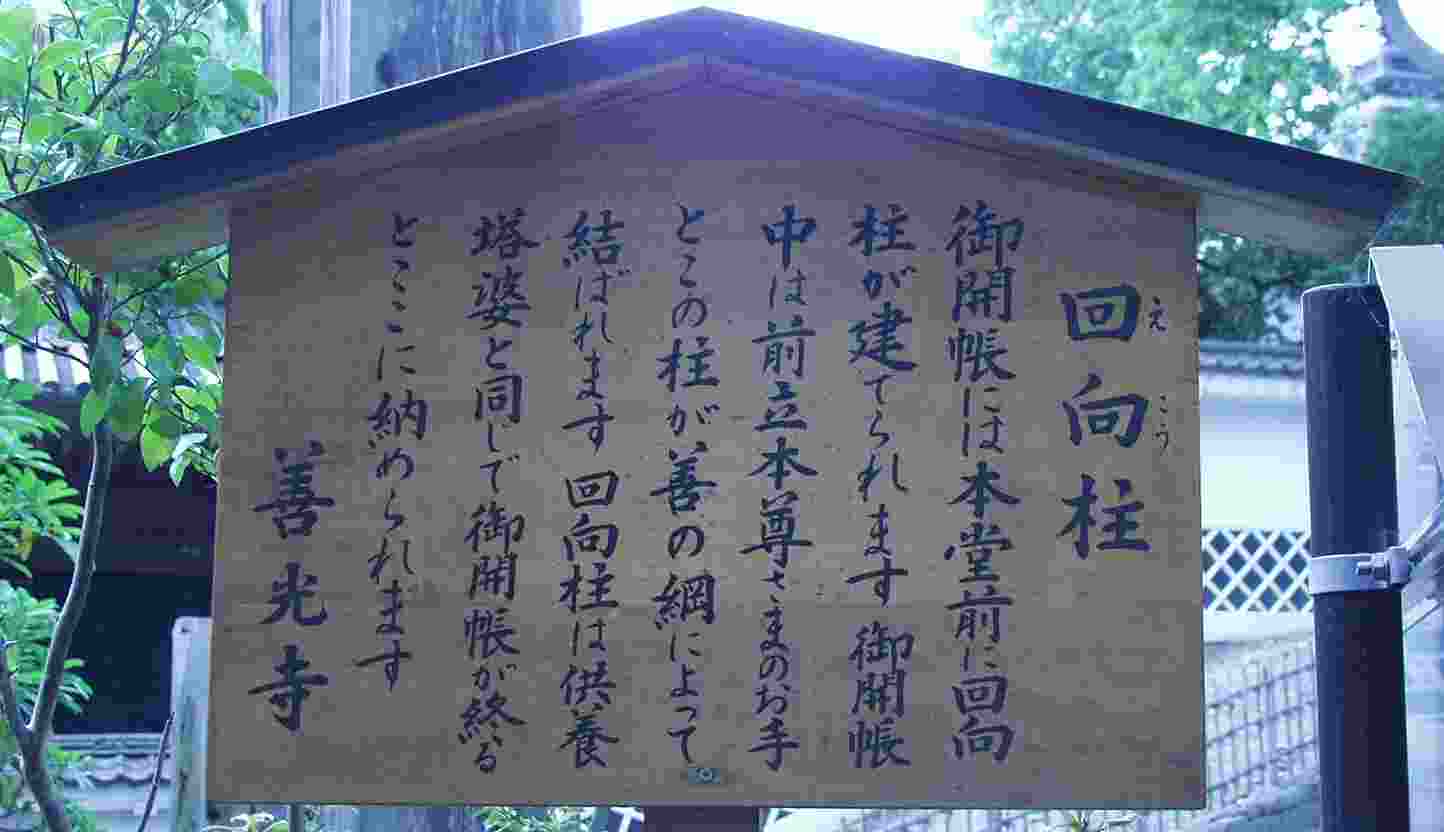 回向柱
えこう
御開帳には本堂前に回向
柱が建てられます 御開帳
中は前立本尊さまのお手
とこの柱が善の綱によって
結ばれます 回向柱は供養
塔婆と同じで御開帳が終る
とここに納められます
善光寺